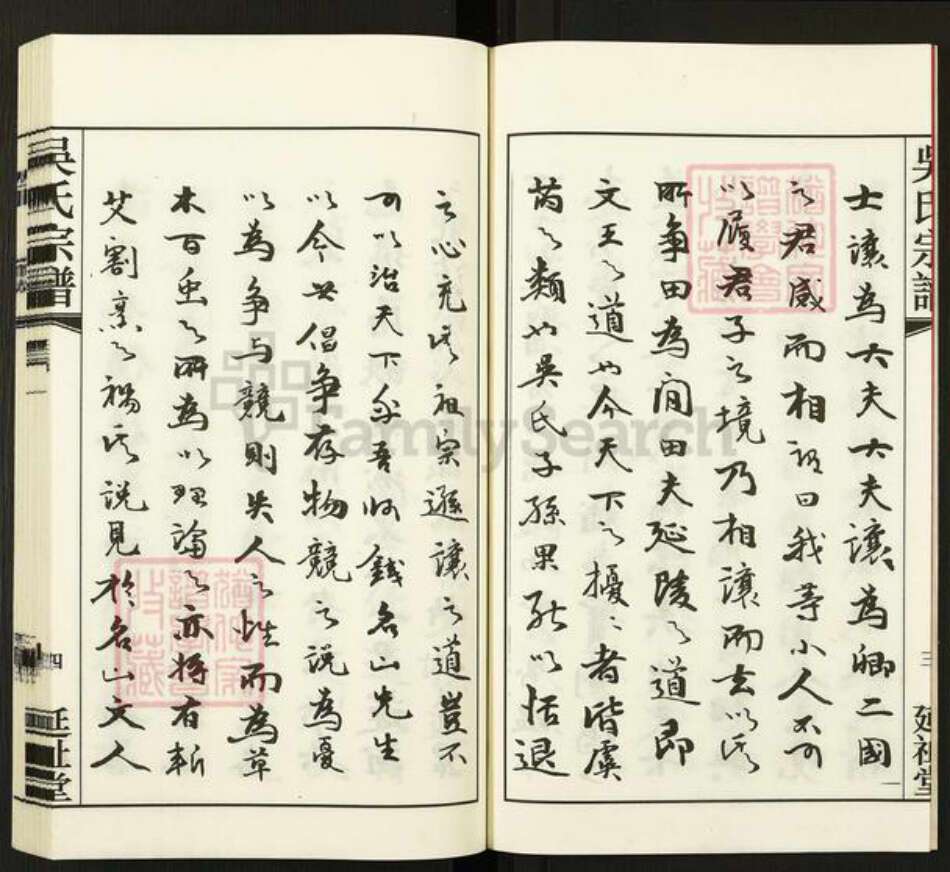 吳氏宗譜
士讓為大夫大夫讓為卿二國
之君感而相謂曰我等小人不可
以履君子之境乃相讓而去以其
所爭田為間田夫延陵之道即
文王之道也今天下之擾擾者皆虞
芮之類也吳氏子孫果能以恬退
三
延祉堂
之心充其祖宗遜讓之道豈不
可以治天下乎吾師錢名山先生
以今世倡爭存物競之說為憂
以為爭與競則失人之性而為草
木百蟲之所為以理論之亦將有斬
艾割烹之禍其說見於名山文人
吳氏宗譜
卷一
四
延祉堂
FamilySearch